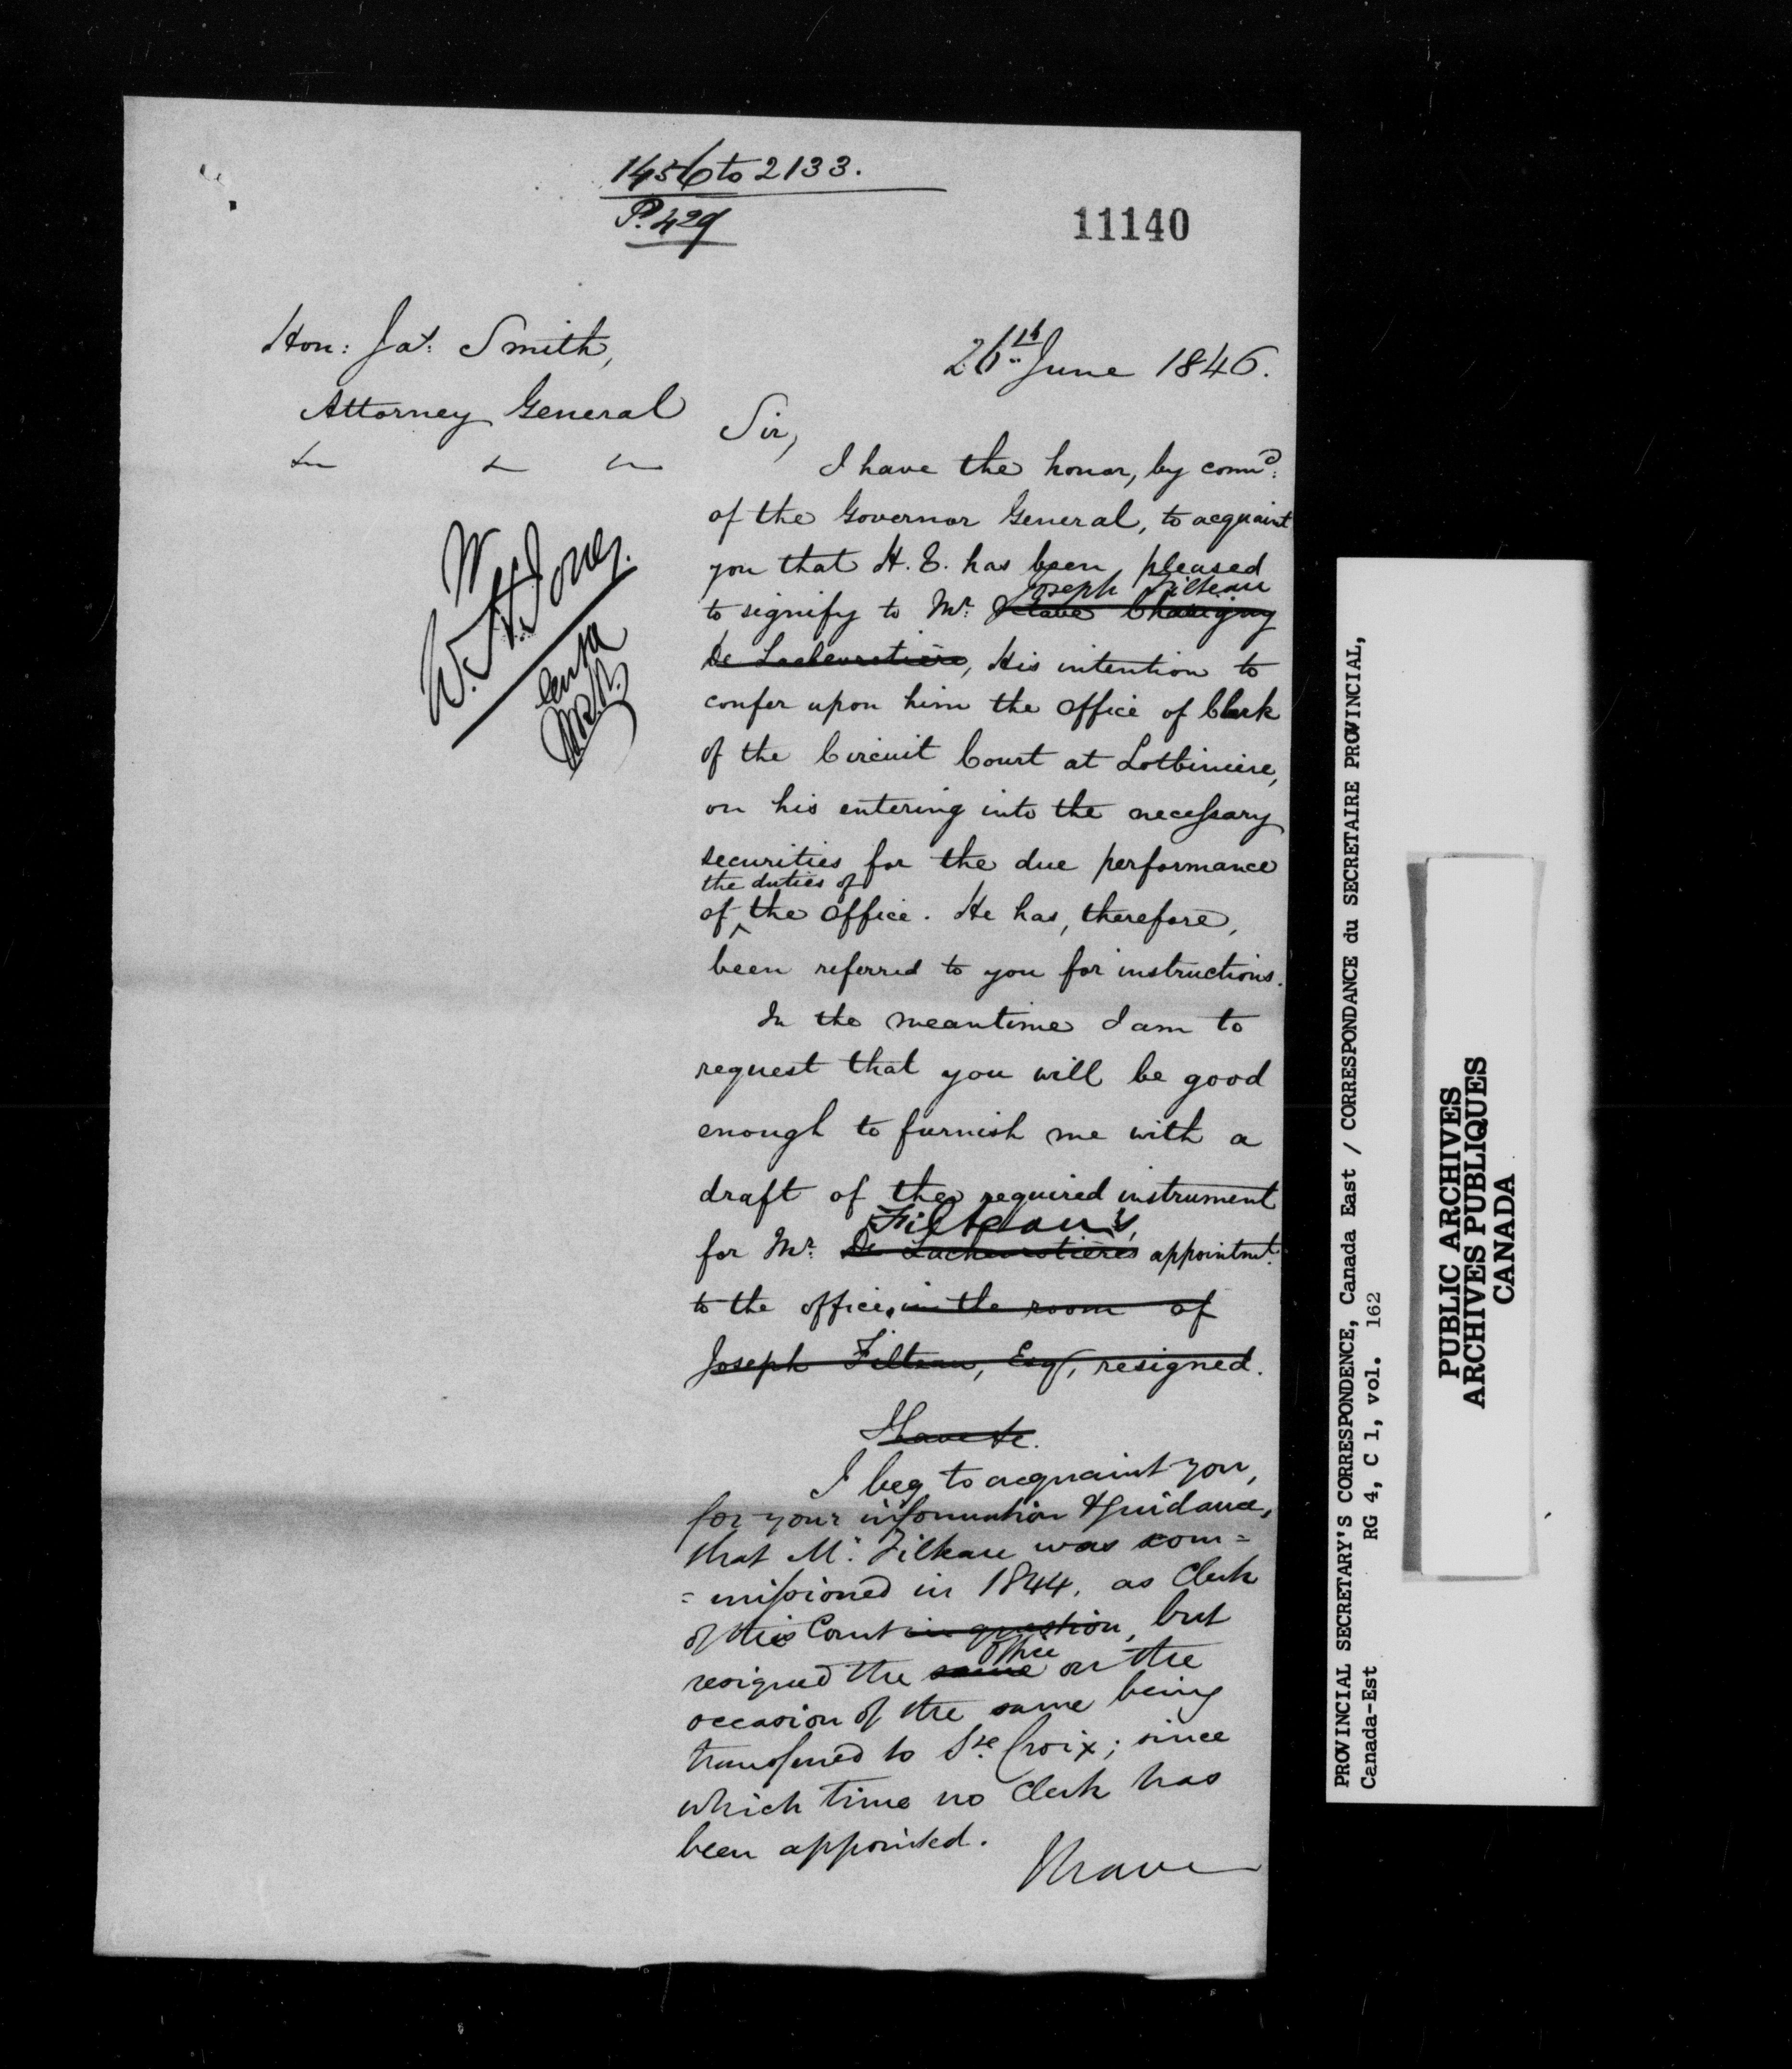 1456 to 2133.
P. 429
11140
Hon: Jas. Smith,
Attorney General
26th June 1846.
Sir,
I have the honor, by comd:
of the Governor General, to acquaint
you that H. E. has been pleased
Joseph Filteau
to signify to Mr. Octave Chavigny
De Lachevrotière, His intention to
confer upon him the office of Clerk
of the Circuit Court at Lotbiniere,
on his entering into the necessary
securities for the due performance
the duties of
of the office. He has, therefore,
been referred to you for instructions.
In the meantime I am to
request that you will be good
enough to furnish me with a
draft of the required instrument
Filteau's
for Mr. De Lachevrotière's appointmt.
to the office, in the room of
Joseph Filteau, Esq, resigned.
I have &c.
I beg to acquaint you,
for your information & guidance,
that Mr. Filteau was com=
=missioned in 1844, as Clerk
of this Court in question, but
office
resigned the same on the
occasion of the same being
transferred to Ste. Croix; since
which time no Clerk has
been appointed.
I have
W. H. Jones.
PROVINCIAL SECRETARY'S CORRESPONDENCE, Canada East / CORRESPONDANCE du SECRETAIRE PROVINCIAL,
Canada-Est RG 4, C 1, vol. 162
PUBLIC ARCHIVES
ARCHIVES PUBLIQUES
CANADA